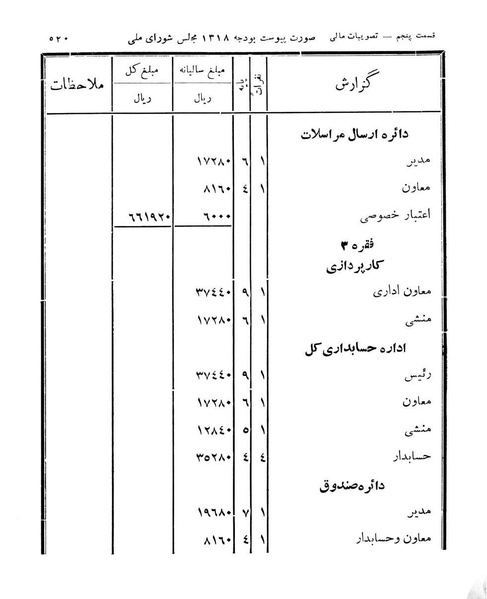 قسمت پنجم — تصویبات مالی صورت پیوست بودجه ۱۳۱۸ مجلس شورای ملی ۵۲۰
گزارش نفرات پایه مبلغ سالیانه مبلغ کل ملاحظات
ریال ریال
دائره ارسال مراسلات
مدیر ۱ ۶ ۱۷۲۸۰
معاون ۱ ٤ ۸۱۶۰
اعتبار خصوصی ۶۰۰۰ ۶۶۱۹۲۰
فقره ۳
کارپردازی
معاون اداری ۱ ۹ ۳۷٤٤۰
منشی ۱ ۶ ۱۷۲۸۰
اداره حسابداری کل
رئیس ۱ ۹ ۳۷٤٤۰
معاون ۱ ۶ ۱۷۲۸۰
منشی ۱ ۵ ۱۲۸٤۰
حسابدار ٤ ٤ ۳۵۲۸۰
دائره صندوق
مدیر ۱ ۷ ۱۹۶۸۰
معاون وحسابدار ۱ ٤ ۸۱۶۰